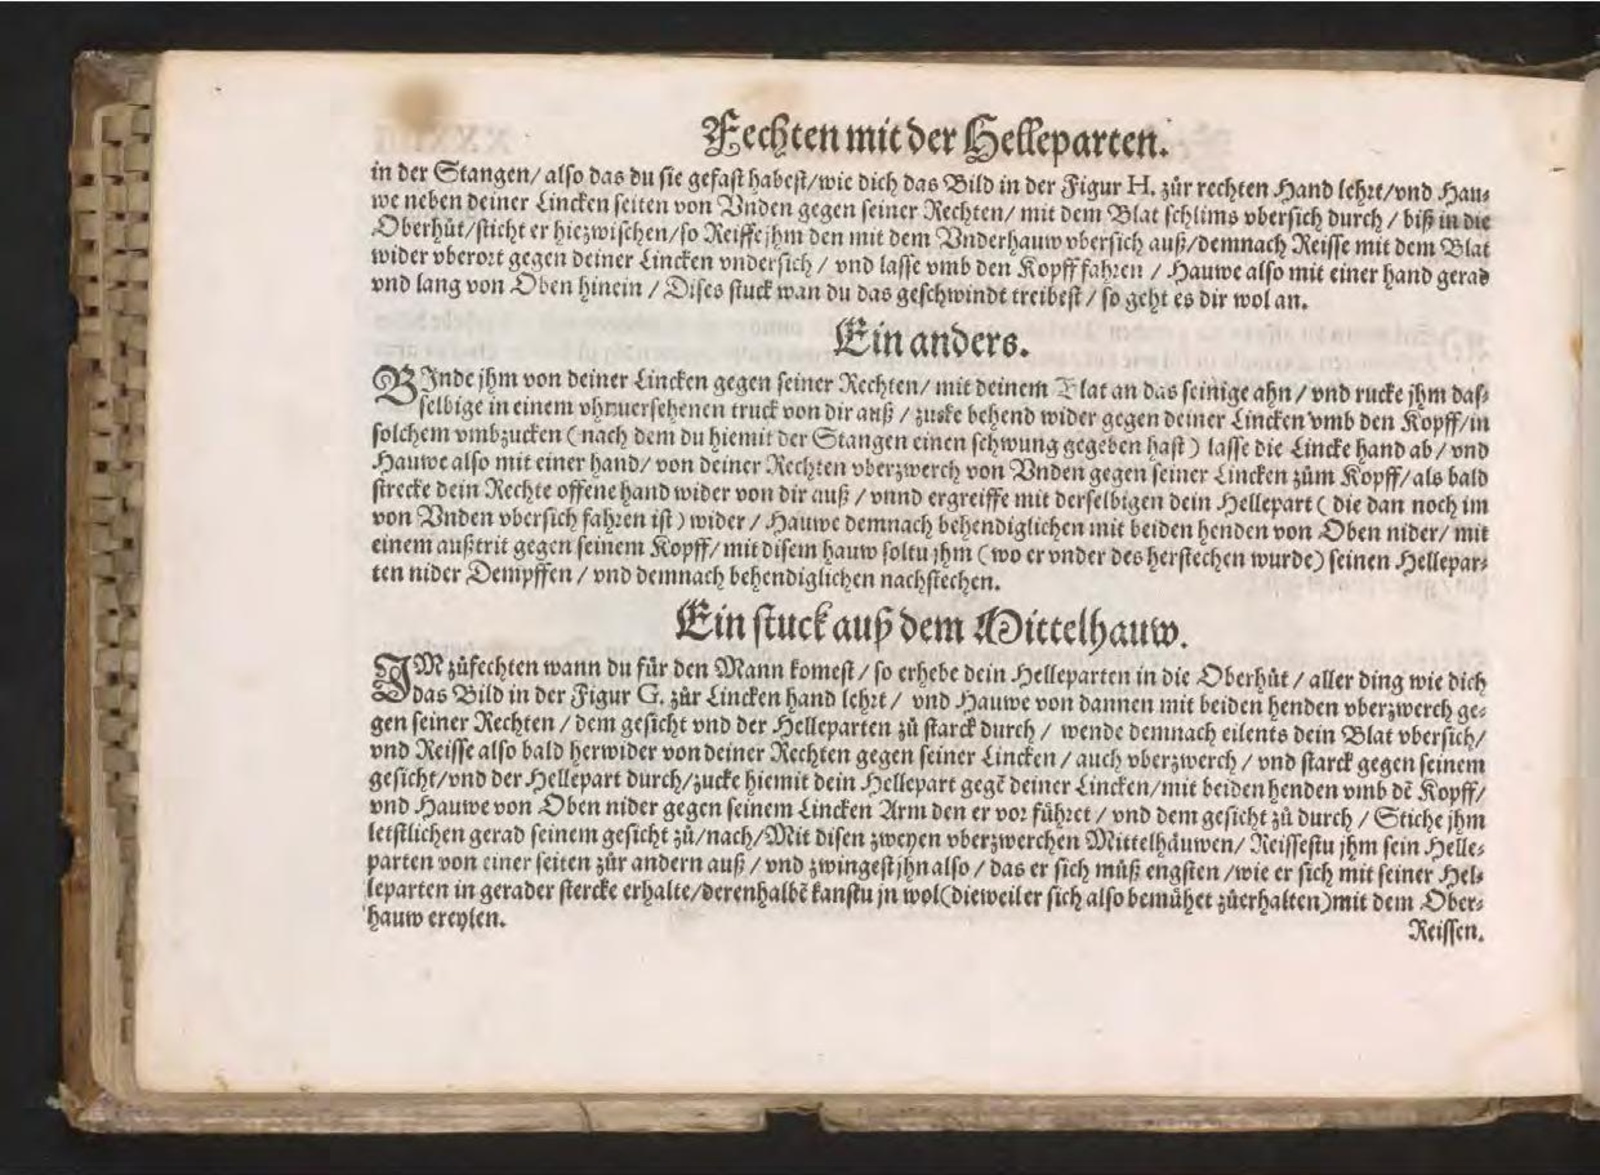 Fechten mit der Helleparten.
in der Stangen/ also das du sie gefast habest/wie dich das Bild in der Figur H. zůr rechten Hand lehrt/vnd Hau⸗
we neben deiner Lincken seiten von Vnden gegen seiner Rechten/ mit dem Blat schlims vbersich durch / biß in die
Oberhůt/sticht er hiezwischen/so Reisse jhm den mit dem Vnderhauw vbersich auß/demnach Reisse mit dem Blat
wider vberort gegen deiner Lincken vndersich / vnd lasse vmb den Kopff fahren / Hauwe also mit einer hand gerad
vnd lang von Oben hinein / Dises stuck wan du das geschwindt treibest / so geht es dir wol an.
Ein anders.
BInde jhm von deiner Lincken gegen seiner Rechten/ mit deinem Blat an das seinige ahn / vnd rucke jhm das⸗
selbige in einem vhnuersehenen truck von dir auß / zucke behend wider gegen deiner Lincken vmb den Kopff/in
solchem vmbzucken (nach dem du hiemit der Stangen einen schwung gegeben hast) lasse die Lincke hand ab/ vnd
Hauwe also mit einer hand/ von deiner Rechten vberzwerch von Vnden gegen seiner Lincken zům Kopff/als bald
strecke dein Rechte offene hand wider von dir auß / vnnd ergreiffe mit derselbigen dein Hellepart ( die dan noch im
von Vnden vbersich fahren ist ) wider / Hauwe demnach behendiglichen mit beiden henden von Oben nider/ mit
einem außtrit gegen seinem Kopff/ mit disem hauw soltu jhm (wo er vnder des herstechen wurde) seinen Hellepar⸗
ten nider Dempffen / vnd demnach behendiglichen nachstechen.
Ein stuck auß dem Mittelhauw.
IM zůfechten wann du für den Mann komest / so erhebe dein Helleparten in die Oberhůt / aller ding wie dich
das Bild in der Figur G. zůr Lincken hand lehrt / vnd Hauwe von dannen mit beiden henden vberzwerch ge⸗
gen seiner Rechten / dem gesicht vnd der Helleparten zů starck durch / wende demnach eilents dein Blat vbersich/
vnd Reisse also bald herwider von deiner Rechten gegen seiner Lincken / auch vberzwerch / vnd starck gegen seinem
gesicht/vnd der Hellepart durch/zucke hiemit dein Hellepart gegē deiner Lincken/mit beiden henden vmb dē Kopff/
vnd Hauwe von Oben nider gegen seinem Lincken Arm den er vor führet / vnd dem gesicht zů durch / Stiche jhm
letstlichen gerad seinem gesicht zů/nach/Mit disen zweyen vberzwerchen Mittelhäuwen/ Reissestu jhm sein Helle⸗
parten von einer seiten zůr andern auß / vnd zwingest jhn also / das er sich můß engsten /wie er sich mit seiner Hel⸗
leparten in gerader stercke erhalte/derenhalbē kanstu jn wol(dieweil er sich also bemühet zůerhalten)mit dem Ober⸗
hauw ereylen.
Reissen.